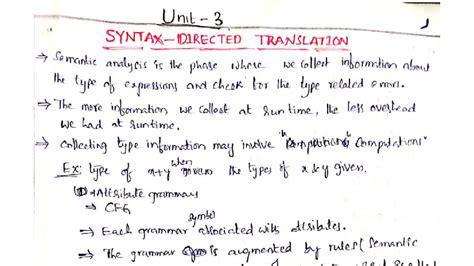 Unit - 3
SYNTAX-DIRECTED TRANSLATION
→ Semantic analysis is the phase where we collect information about
the type of expressions and check for the type related errors.
→ The more information we collect at runtime, the less overhead
we had at runtime.
→ Collecting type information may involve "Computations"
Ex: type of x+y when given the types of x & y given.
Attribute grammars
→ CFG
⇒ Each grammar symbol associated with
⇒ The grammar is augmented by rules (semantic